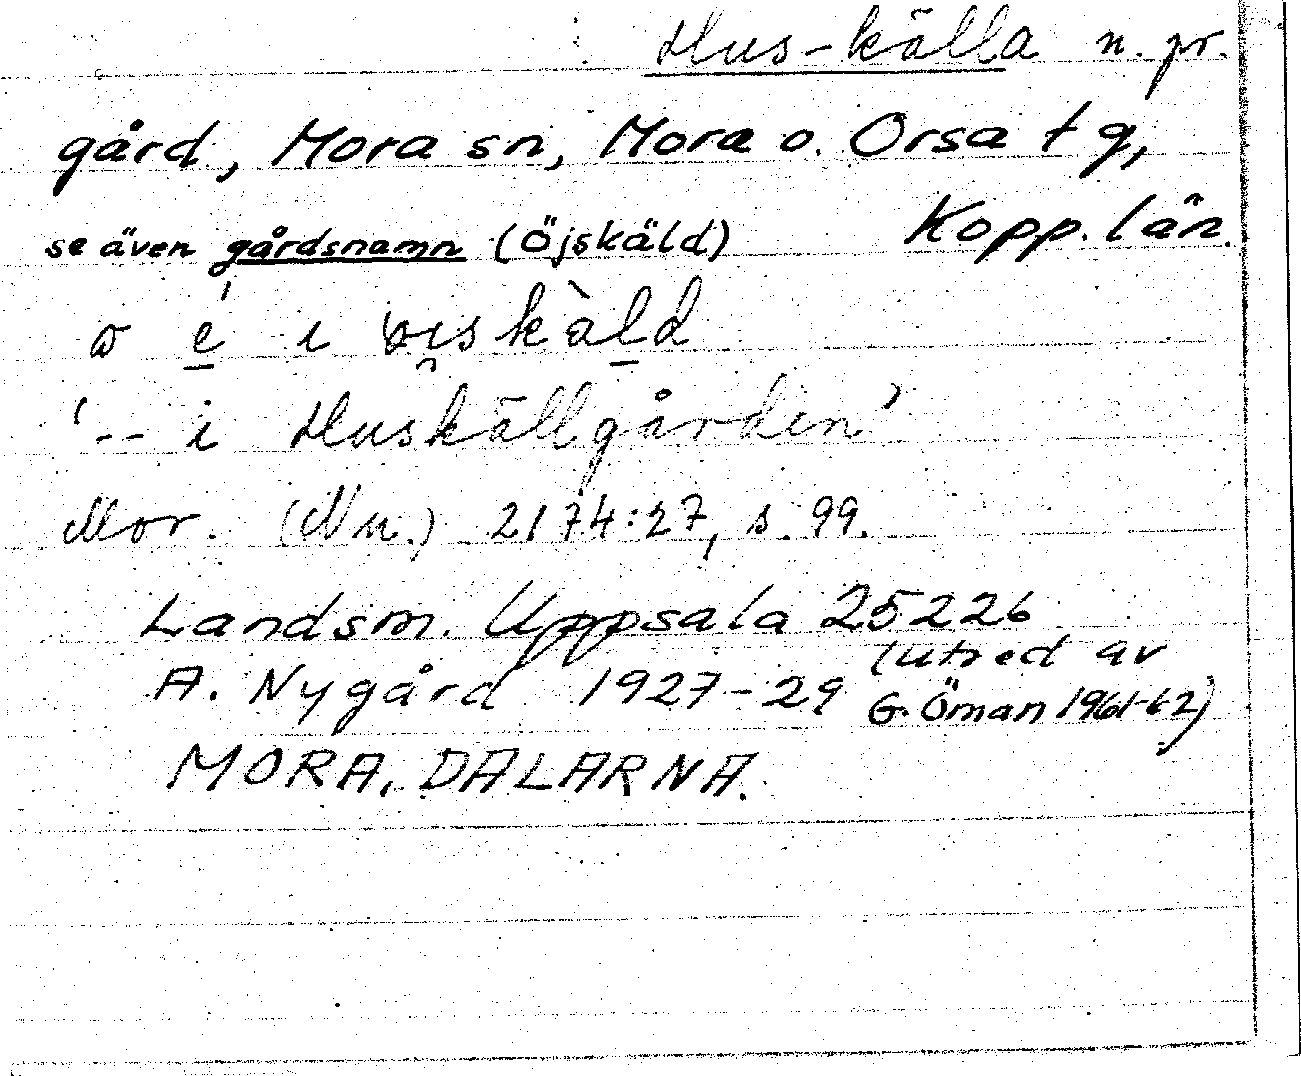 Hus-källa n. pr.
gård, Mora sn, Mora o. Orsa tg,
Kopp. län.
se även gårdsnamn (Öjskäld)
i
'-- i Huskällgården'
Mor. (Nn.) 2174:27, s. 99.
Landsm. Uppsala 25226
A. Nygård 1927-29 (utred av
G. Öman 1961-62)
MORA, DALARNA.